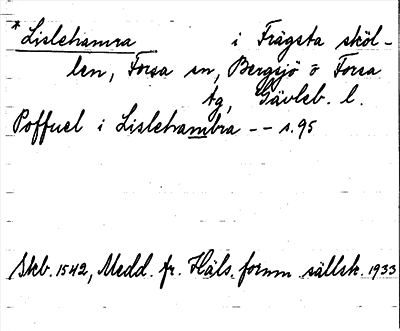 *Lislehamra i Frägsta sköl-
len, Forsa sn, Bergsjö o Forsa
tg, Gävleb. l.
Poffuel i Lislehambra -- s. 95
Skb. 1542, Medd. fr. Häls. fornm. sällsk. 1933